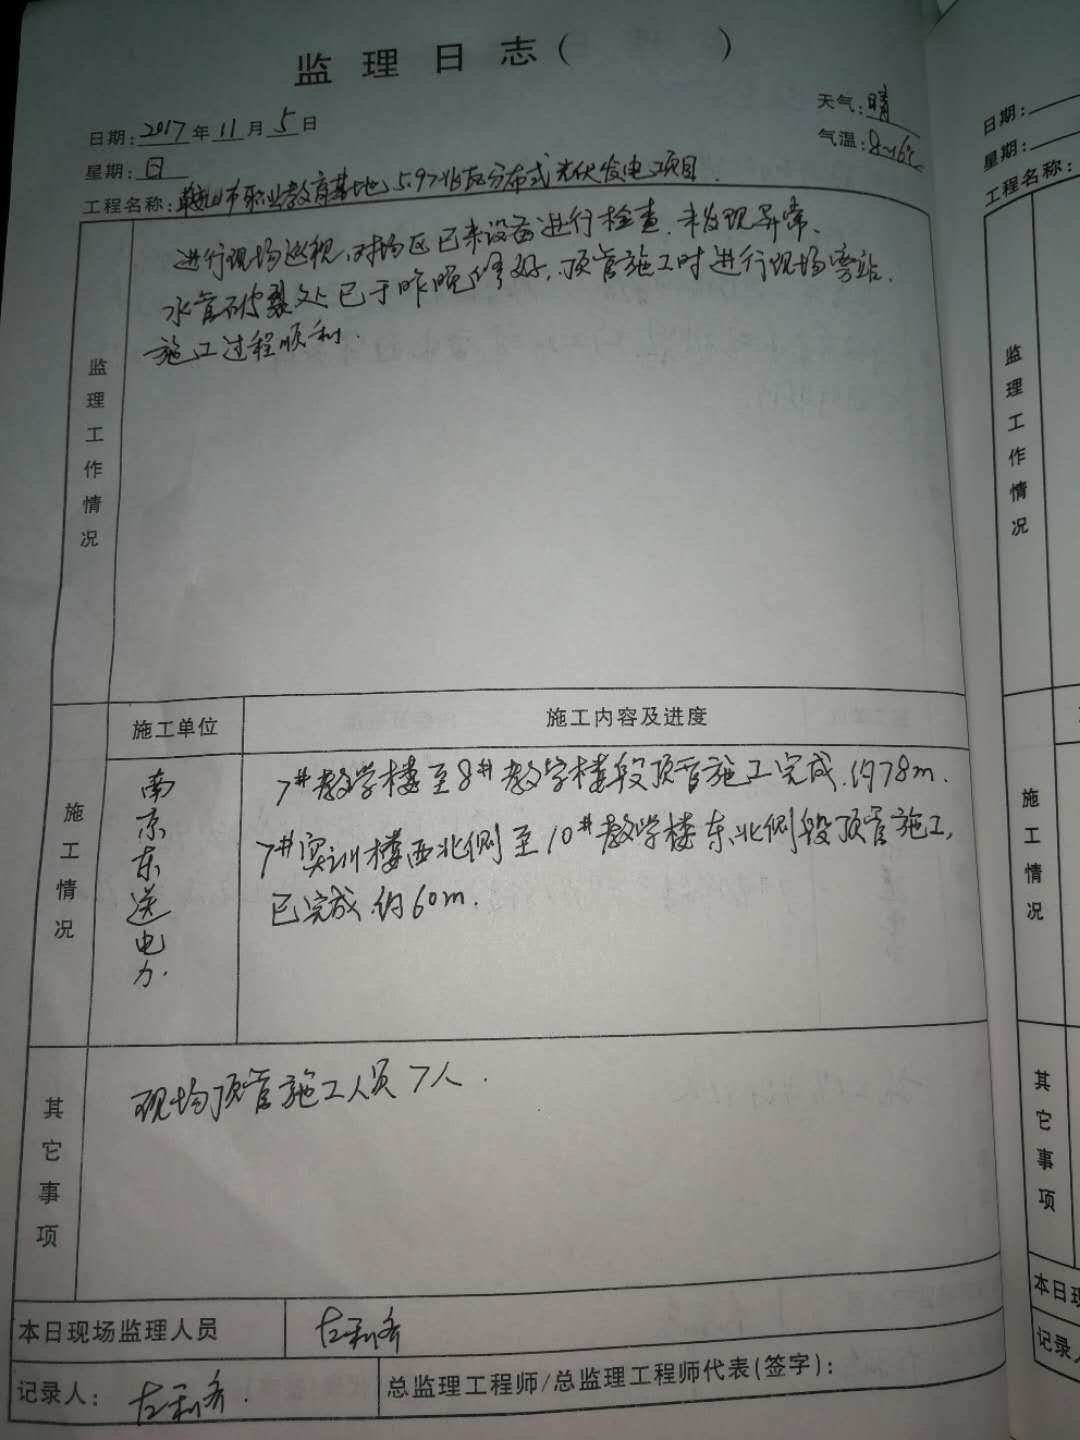 监理日志（ ）
日期：2017年11月5日
天气：晴
星期：日
气温：8~16℃
工程名称：鞍山市职业教育基地5.97兆瓦分布式光伏发电项目
监理工作情况
进行现场巡视，对场区已来设备进行检查，未发现异常、
水管破裂处已于昨晚修好，顶管施工时进行现场旁站．
施工过程顺利．
施工情况
施工单位
施工内容及进度
南京东送电力．
7#教学楼至8#教学楼段顶管施工完成．约78m．
7#实训楼西北侧至10#教学楼东北侧段顶管施工，
已完成．约60m．
其它事项
现场顶管施工人员7人．
本日现场监理人员
记录人：
总监理工程师/总监理工程师代表(签字)：
日期：
星期：
工程名称：
监理工作情况
施工情况
其它事项
本日现
记录人